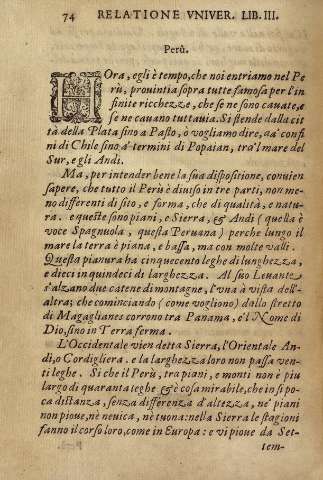 74 RELATIONE VNIVER. LIB. III.
Perù.
HOra, egli è tempo, che noi entriamo nel Pe
rù, prouintia sopra tutte famosa per l'in
finite ricchezze, che se ne sono cauate, e
se ne cauano tuttauia. Si stende dalla cit
tà della Plata sino a Pasto, ò vogliamo dire, da' confi
ni di Chile sino à termini di Popaian, tra'l mare del
Sur, e gli Andi.
Ma, per intender bene la sua dispositione, conuien
sapere, che tutto il Perù è diuiso in tre parti, non me-
no differenti di sito, e forma, che di qualità, e natu-
ra. e queste sono piani, e Sierra, & Andi (questa è
voce Spagnuola, questa Peruana) perche lungo il
mare la terra è piana, e bassa, ma con molte valli.
Questa pianura ha cinquecento leghe di lunghezza,
e dieci in quindeci di larghezza. Al suo Leuante
s'alzano due catene di montagne, l'vna à vista dell'-
altra; che cominciando (come vogliono) dallo stretto
di Magaglianes corrono tra Panama, e'l Nome di
Dio, sino in Terra ferma.
L'Occidentale vien detta Sierra, l'Orientale An-
di, o Cordigliera. e la larghezza loro non passa ven-
ti leghe. Si che il Perù, tra piani, e monti non è piu
largo di quaranta leghe & è cosa mirabile, che in sì po-
ca distanza, senza differenza d'altezza, ne' piani
non pioue, nè neuica, nè tuona: nella Sierra le stagioni
fanno il corso loro, come in Europa: e vi pioue da Set-
tem-